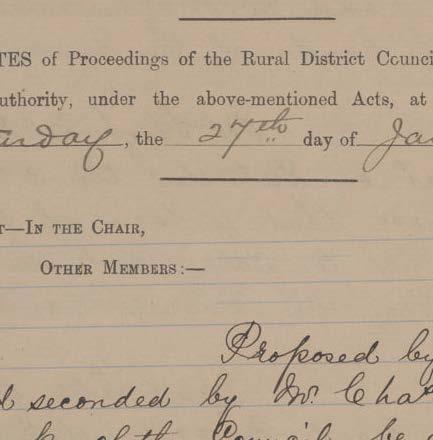 TES of Proceedings of the Rural District Counci
uthority, under the above-mentioned Acts, at
urday, the 27th day of Ja
T—IN THE CHAIR,
OTHER MEMBERS:—
Proposed by
d seconded by Mr. Cha
of the Council be